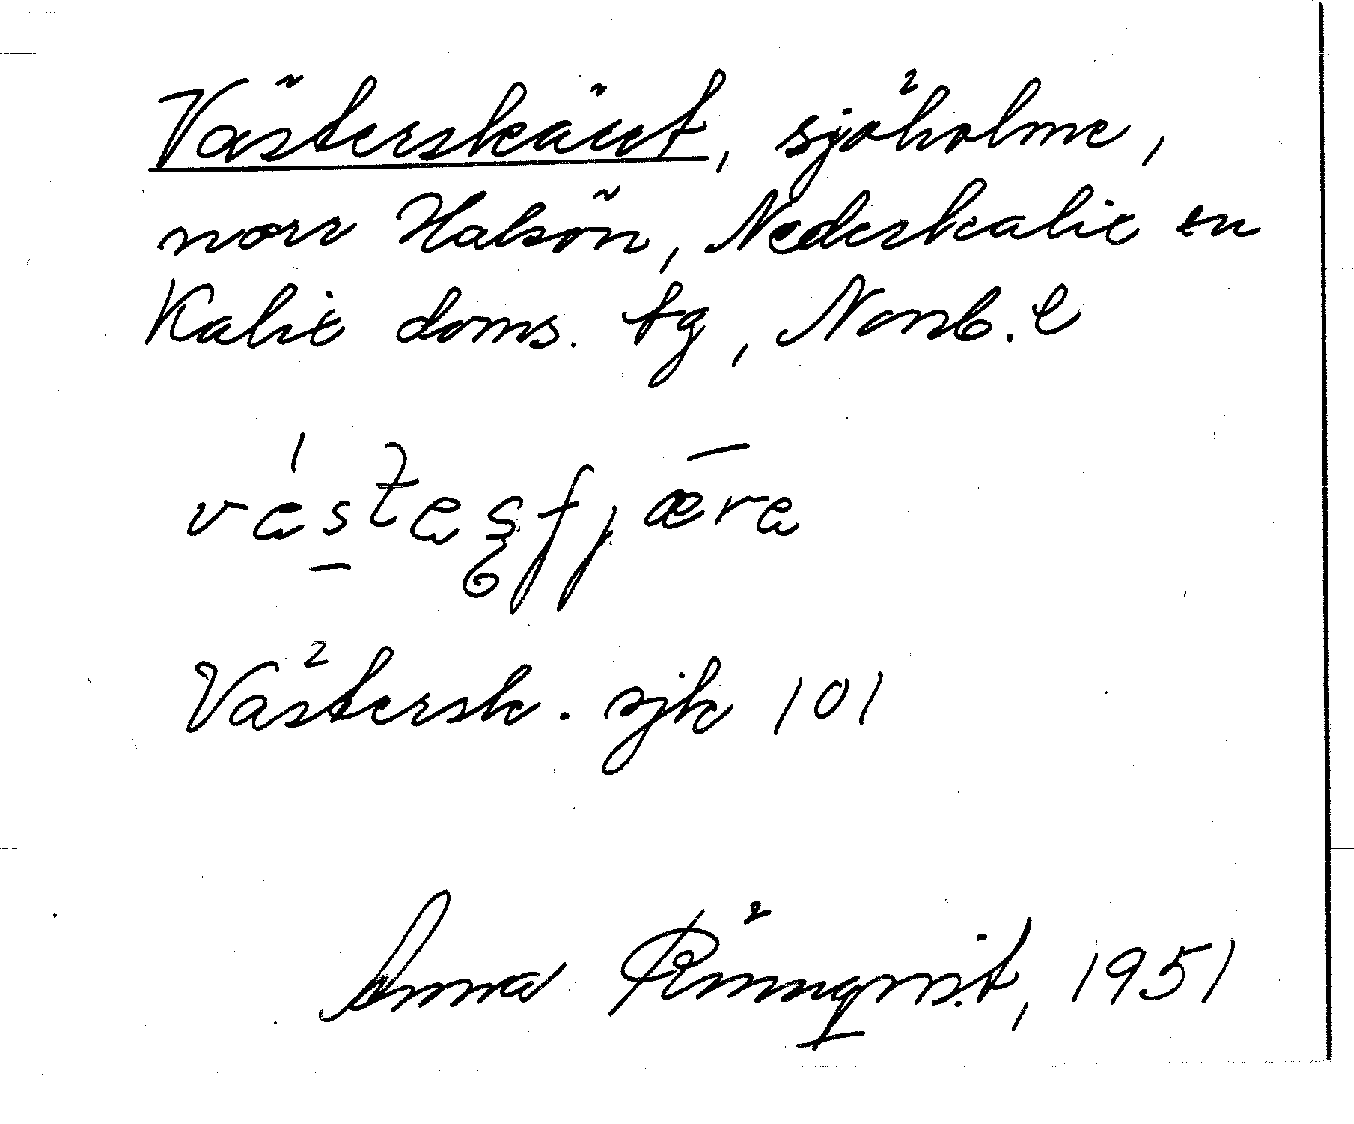 Västerskäret, sjöholme,
norr Halsön, Nederkalix sn
Kalix doms. tg, Norrb. l
véstesfjæra
Västersk. sjk 101
Anna Rönnqvist, 1951